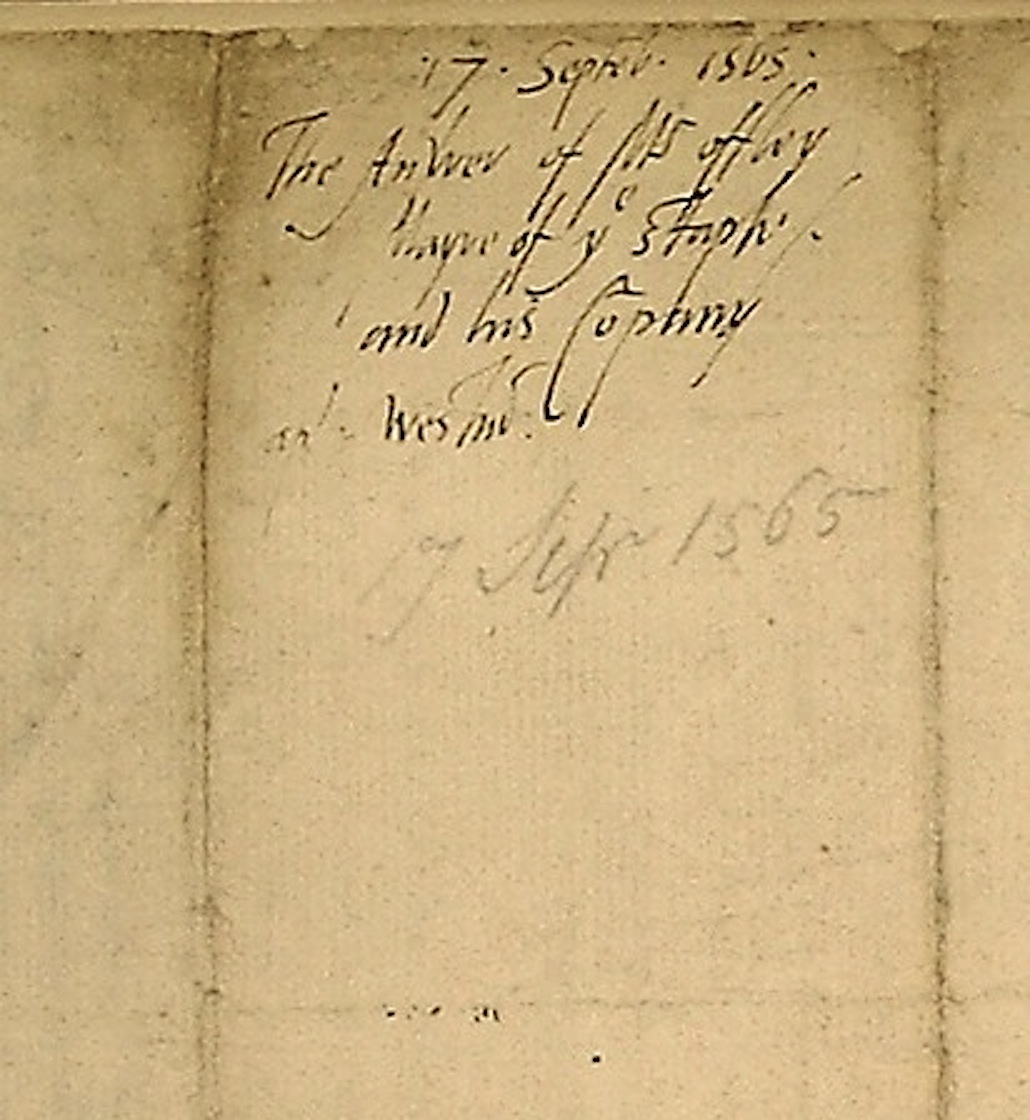 ·17· Septeb· 1565·
The Answer of Mr offley
Mayre of ye Staple /.
and his Copany
at Westm͞:
17 Sepr 1565